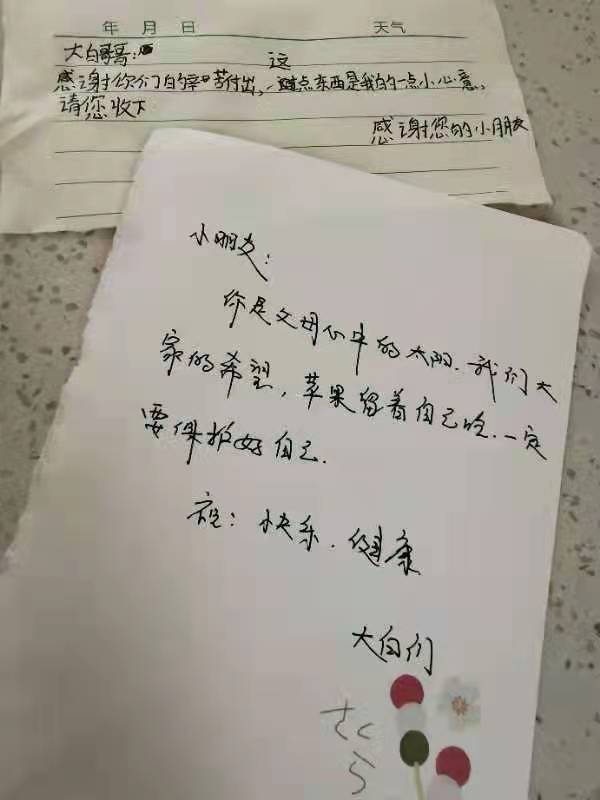 年 月 日 天气
大白哥哥:
这
感谢你们的辛苦付出,点东西是我的一点小心意,
请您收下
感谢您的小朋友
小朋友:
你是父母心中的太阳.我们大
家的希望,苹果留着自己吃.一定
要保护好自己.
祝:快乐.健康
大白们